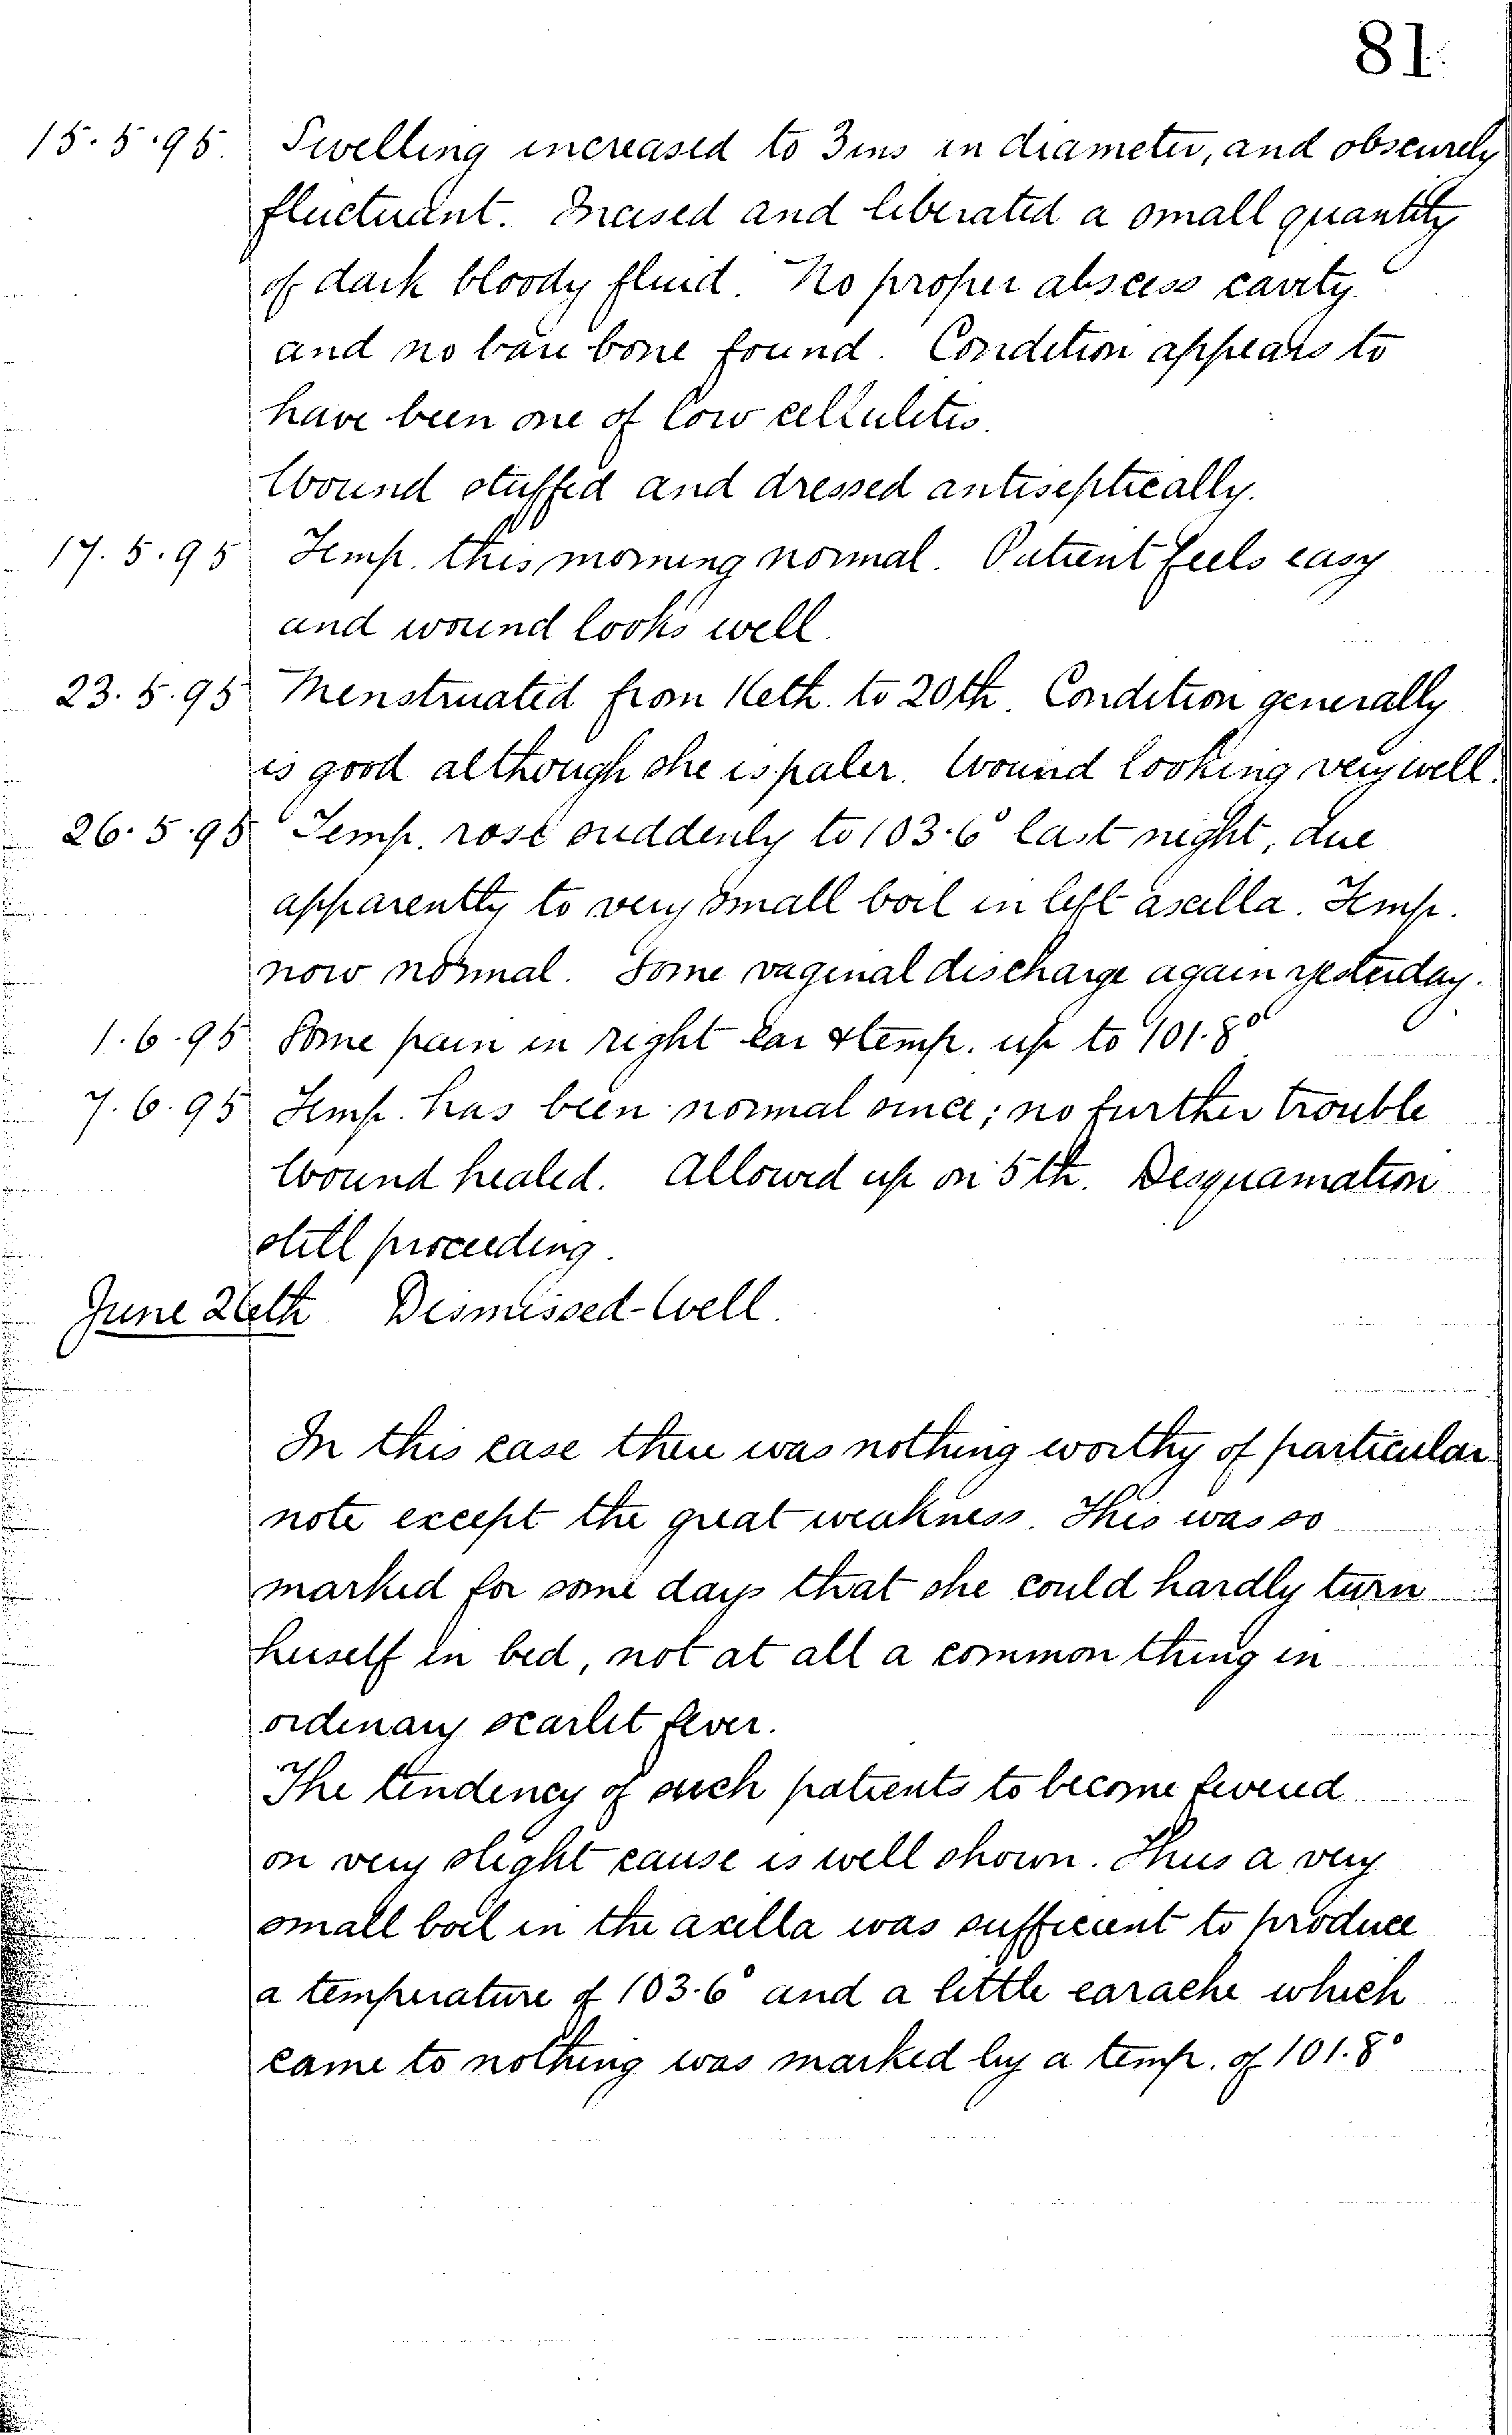 81.
15.5.95. Swelling increased to 3ins in diameter, and obscurely
fluctuant. Incised and liberated a small quantity
of dark bloody fluid. No proper abscess cavity
and no bare bone found. Condition appears to
have been one of low cellulitis.
Wound stuffed and dressed antiseptically.
17.5.95 Temp. this morning normal. Patient feels easy
and wound looks well.
23.5.95 Menstruated from 16th. to 20th. Condition generally
is good although she is paler. Wound looking very well.
26.5.95 Temp. rose suddenly to 103.6° last night, due
apparently to very small boil in left axilla. Temp.
now normal. Some vaginal discharge again yesterday.
1.6.95 Some pain in right ear & temp. up to 101.8°
7.6.95 Temp. has been normal since; no further trouble
Wound healed. Allowed up on 5th. Desquamation
still proceeding.
June 26th Dismissed-Well.
In this case there was nothing worthy of particular
note except the great weakness. This was so
marked for some days that she could hardly turn
herself in bed, not at all a common thing in
ordinary scarlet fever.
The tendency of such patients to become fevered
on very slight cause is well shown. Thus a very
small boil in the axilla was sufficient to produce
a temperature of 103.6° and a little earache which
came to nothing was marked by a temp. of 101.8°